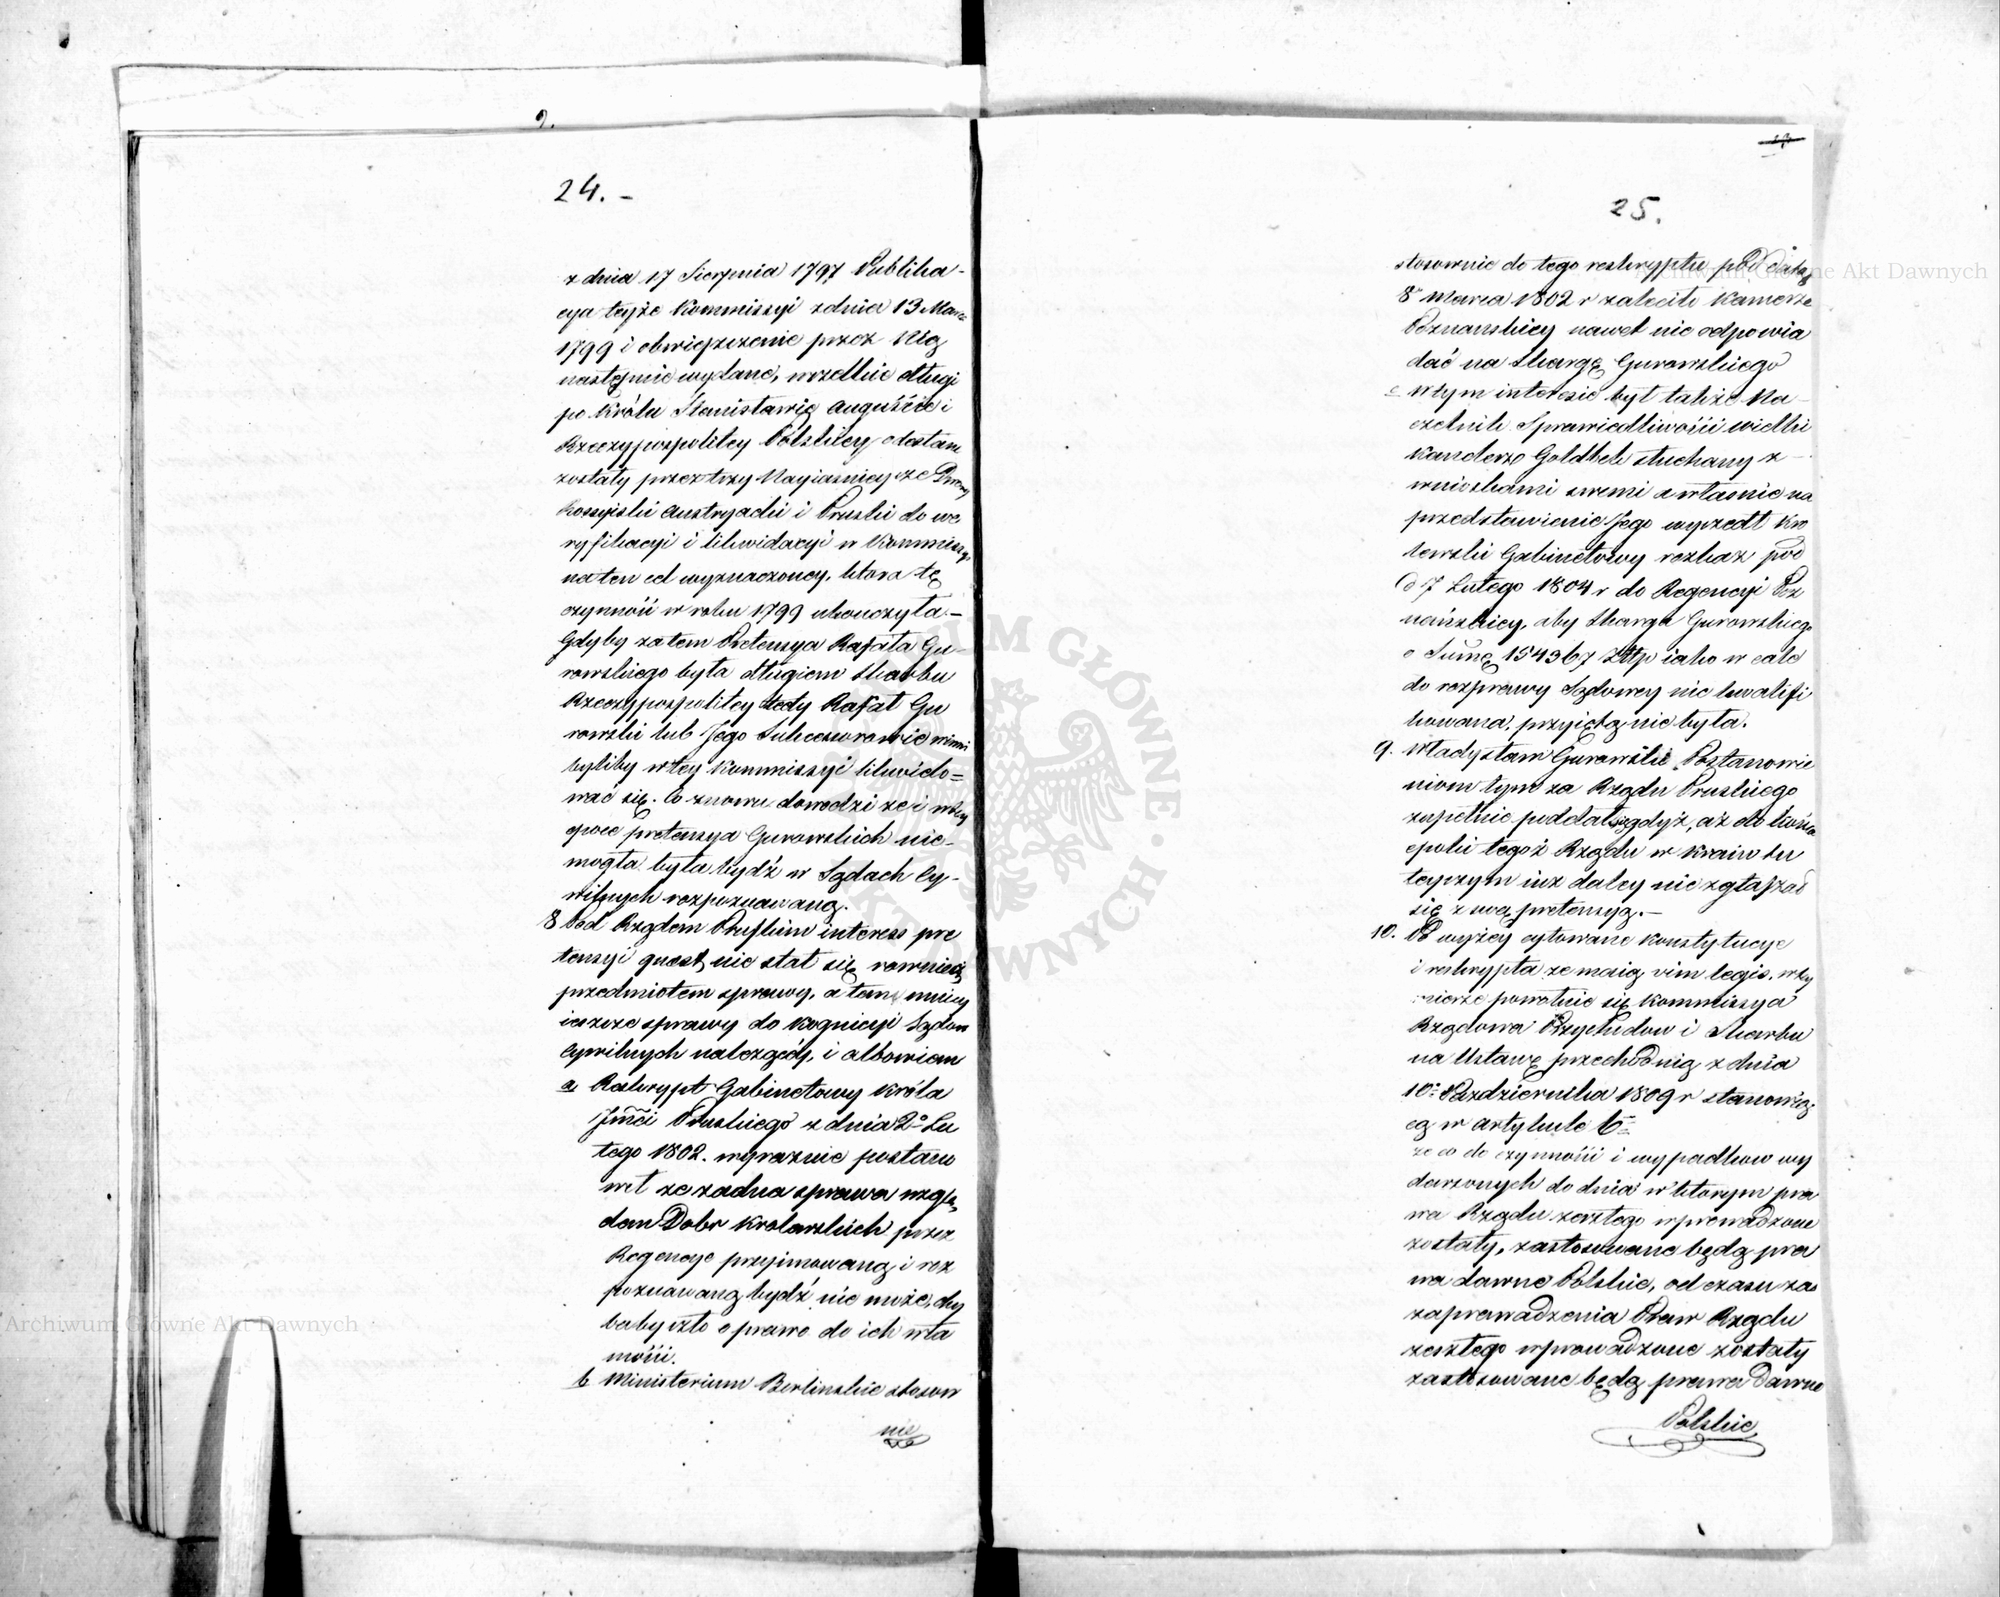 24. -
z dnia 17 Sierpnia 1797 Publika-
cya teyże Kommissyi z dnia 13 Marca
1799 i obwieszczenie przez Nią
następnie wydane, wszelkie długi
po Królu Stanisławie Auguście i
Rzeczypospolitey Polskiey odesłane
zostały przez trzy Nayiaśnieysze Dwory
Rossyiski Austryacki i Pruski do we
ryfikacyi i likwidacyi w Kommissyi
na ten cel wyznaczoney, ktora tę
czynność w roku 1799 ukończyła -
Gdyby zatem Pretensya Rafała Gu-
rowskiego była długiem Skarbu
Rzeczypospolitey tedy Rafał Gu
rowski lub Jego Sukcessorowie winni
byliby w tey Kommissyi likwido=
wać się. Co znowu dowodzi że i w tey
epoce pretensya Gurowskich nie-
mogła była bydź w Sądach Cy-
wilnych rozpoznawaną.
8 Pod Rządem Pruskim interess pre
tensyi quaest, nie stał się rownież
przedmiotem sprawy, a tem mniey
ieszcze sprawy do Kognicyi Sądow
Cywilnych należącéy, i albowiem
a Reskrypt Gabinetowy Króla
Jmci Pruskiego z dnia 2° Lu
tego 1802. wyraznie postano
wił że żadna sprawa wzglę
dem Dobr Krolewskich przez
Regencye przyimowaną i roz
poznawaną bydź nie może, chy
baby szło o prawo do ich wła
sności.
b Ministerium Berlinskie stosow
nie
25.
stosownie do tego reskryptu pod datą
8° Marca 1802 r zaleciło Kamerze
Poznanskiey nawet nie odpowia
dać na Skargę Gurowskiego
c W tym interesie był także Na-
czelnik Sprawiedliwości Wielki
Kanclerz Goldbek słuchany z -
wnioskami swemi a właśnie na
przedstawienie Jego wyszedł Kro
lewski Gabinetowy rozkaz pod
d 7 Lutego 1804 r do Regencyi Poz
nańskiey, aby Skarga Gurowskiego
o Summę 154367 Złtp iako w cale
do rozprawy Sądowey nie kwalifi
kowana, przyiętą nie była.
9. Władysław Gurowski Postanowie
niom tym za Rządu Pruskiego
zupełnie poddał się gdyż, aż do końca
epoki tegoż Rządu w kraiu tu
teyszym iuż daley nie zgłaszał
się z swą pretensyą. -
10. Co wyżey cytowane Konstytucye
i reskrypta że maią vim legis. w tey
mierze powołuie się Kommissya
Rządowa Przychodow i Skarbu
na Ustawę przechodnią z dnia
10° Pazdziernika 1809 r stanowią
cą w artykule 6=
że co do czynności i wypadkow wy
darzonych do dnia w ktorym pra
wa Rządu zeszłego wprowadzone
zostały, zastosowane będą pra
wa dawne Polskie, od czasu za
zaprowadzenia Praw Rządu
zeszłego wprowadzone zostały
zastosowane będą prawa dawne
Polskie
Archiwum Główne Akt Dawnych
Archiwum Główne Akt Dawnych